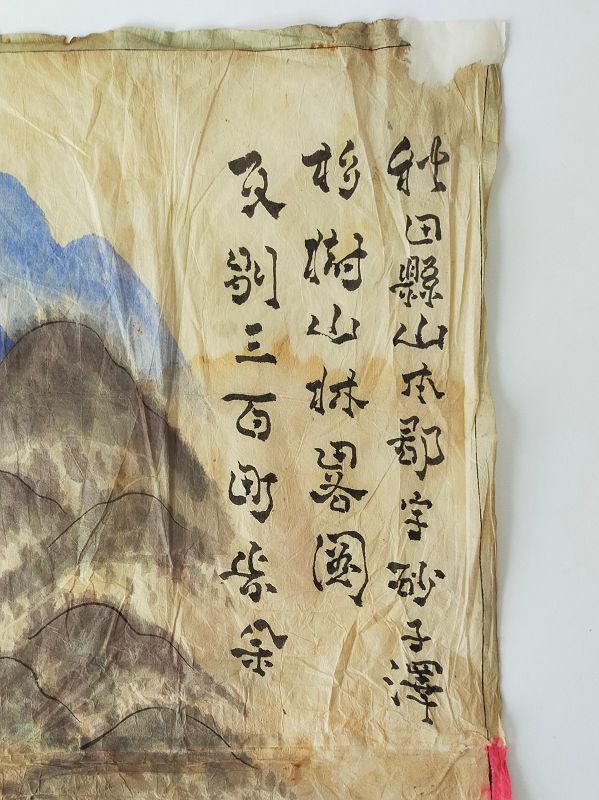 秋田縣山本郡字砂子澤
杉樹山林畧圖
反別三百町歩余